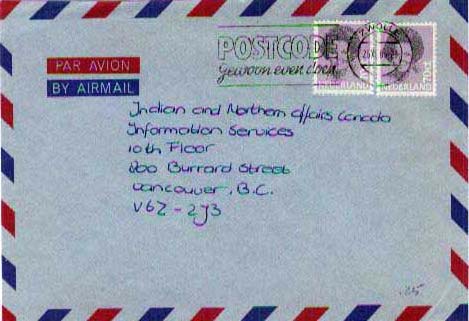 ZWOLLE
POSTCODE
gewoon even doen
70ct
NEDERLAND NEDERLAND
PAR AVION
BY AIRMAIL
Indian and Northern Affairs Canada
Information Services
10th Floor
800 Burrard Street
Vancouver, B.C.
V6Z - 2J3
.25